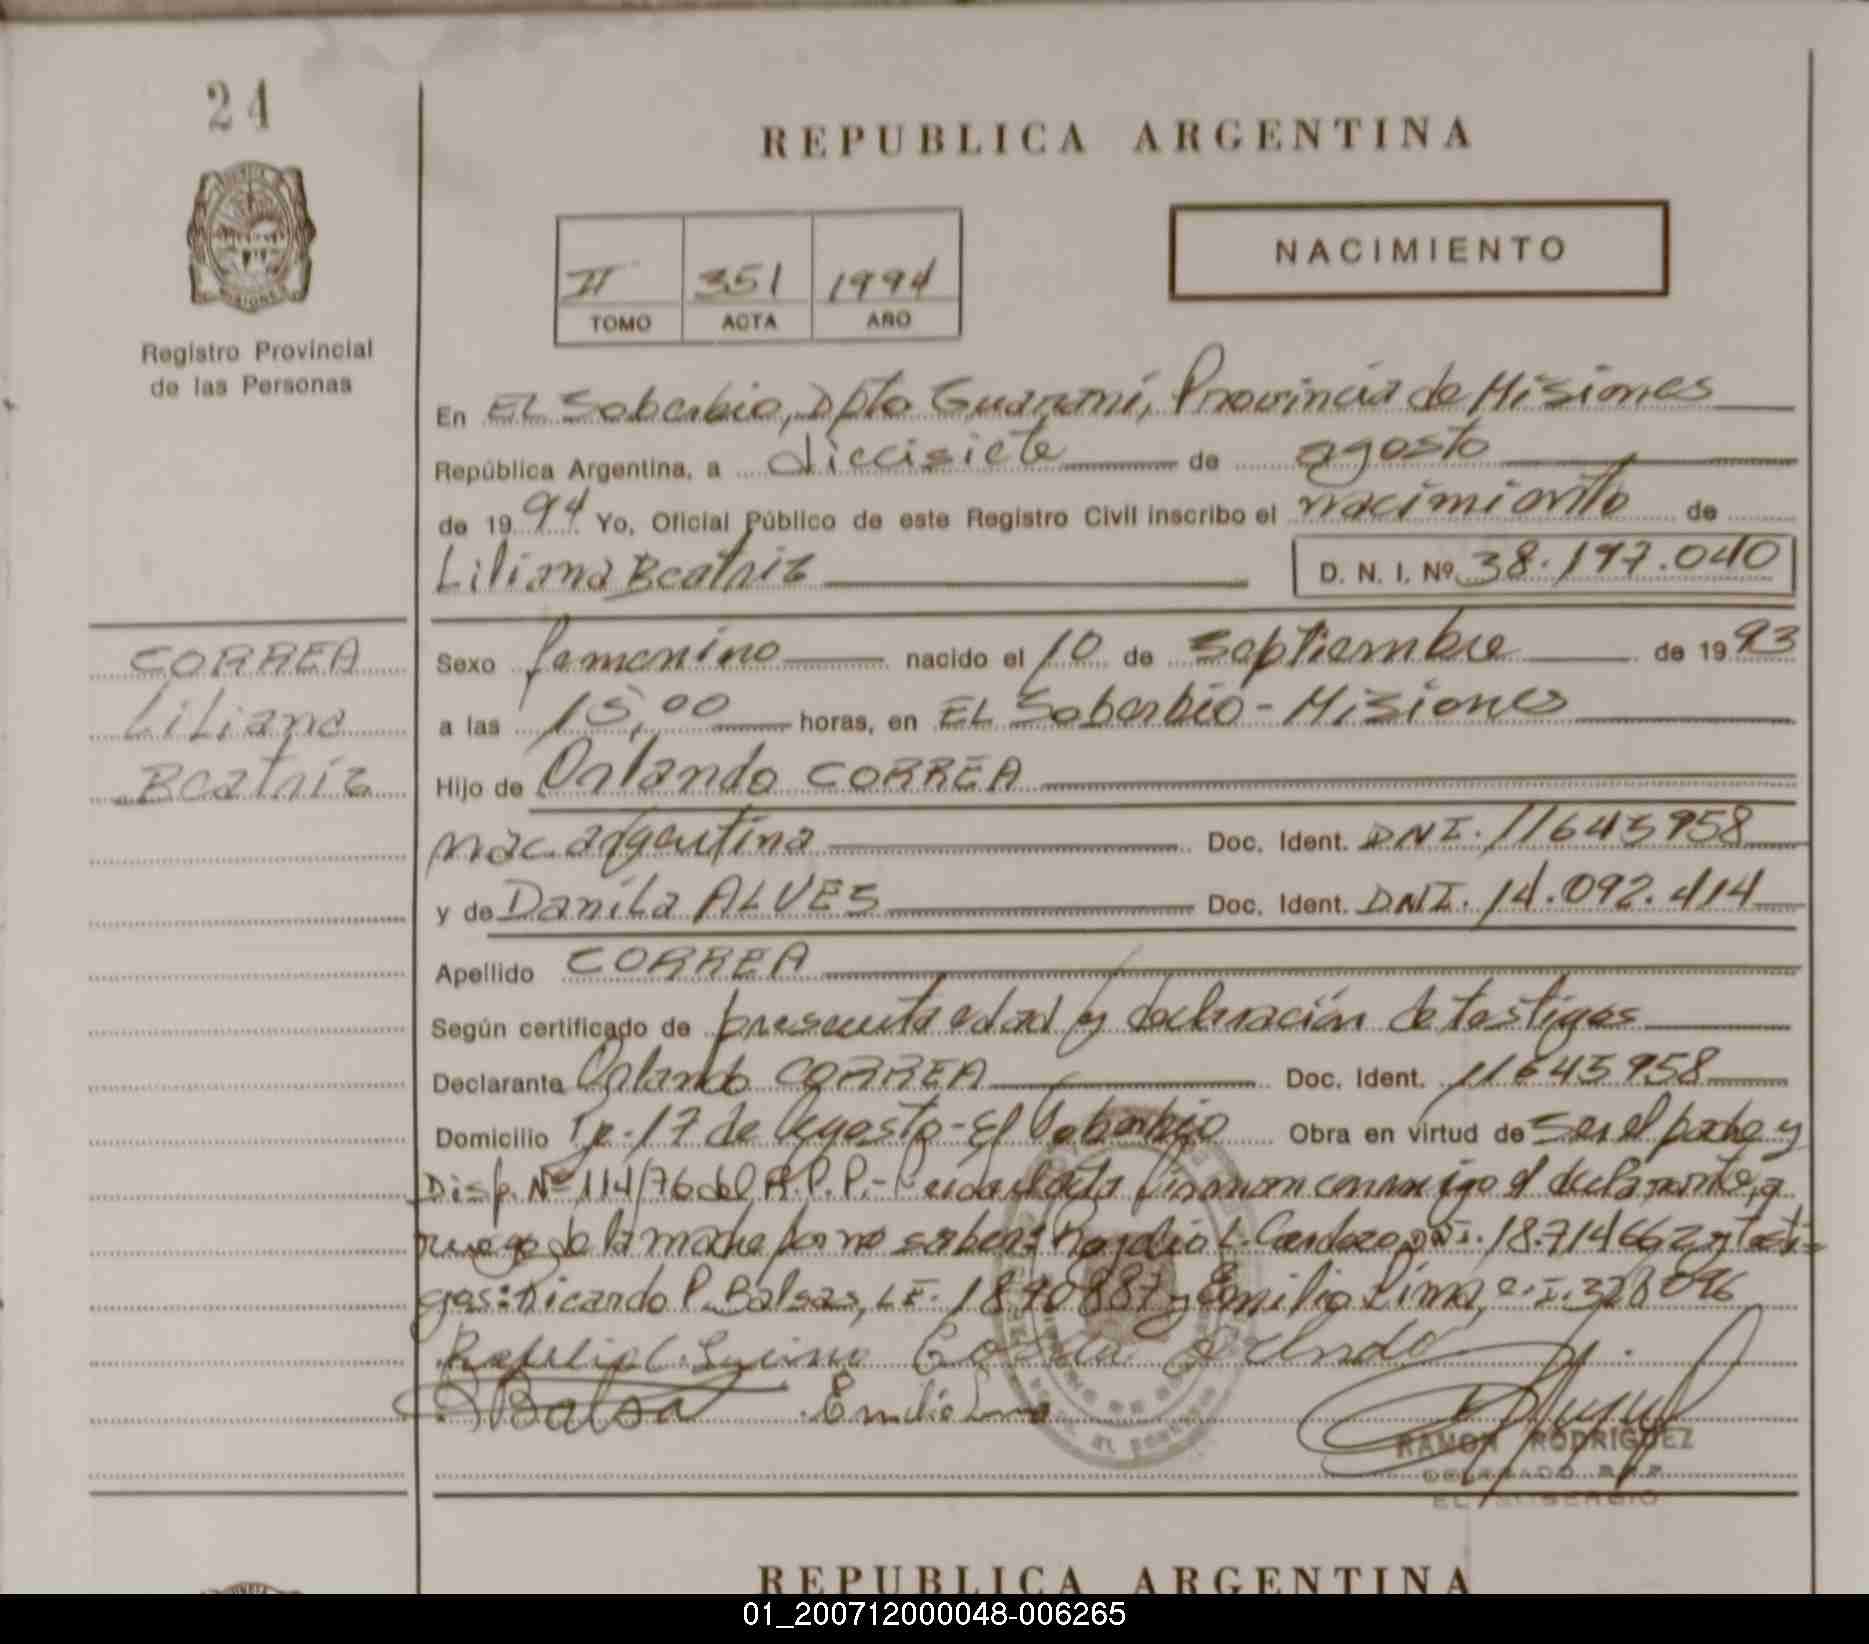 24
REPUBLICA ARGENTINA
NACIMIENTO
II 351 1994
TOMO ACTA AÑO
Registro Provincial
de las Personas
En EL Soberbio, Dpto Guaraní, Provincia de Misiones
República Argentina, a diecisiete de agosto
de 1994 Yo, Oficial Público de este Registro Civil inscribo el nacimiento de
Liliana Beatriz D. N. I. Nº 38.197.040
CORREA
Liliana
Beatriz
Sexo femenino nacido el 10 de Septiembre de 1993
a las 15,00 horas, en EL Soberbio - Misiones
Hijo de Orlando CORREA
nac. argentina Doc. Ident. DNI. 11645958
y de Danila ALVES Doc. Ident. DNI. 14.092.414
Apellido CORREA
Según certificado de presunta edad y declaración de testigos
Declarante Orlando CORREA Doc. Ident. 11645958
Domicilio 17 de Agosto - El Soberbio Obra en virtud de ser el padre y
Disp. Nº 114/76 del R.P.P.- Leida el acta firman conmigo el declarante, a
ruego de la madre por no saber: Rogelio L. Cardozo DNI. 18.714662 y testi-
gos: Ricardo P. Balsas, L.E. 1890887 y Emilio Lima, C.I. 328096
Correa Orlando
Balsa Emilio Lima
RAMON RODRIGUEZ
DELEGADO R.P.P.
EL SOBERBIO
REPUBLICA ARGENTINA
01_200712000048-006265